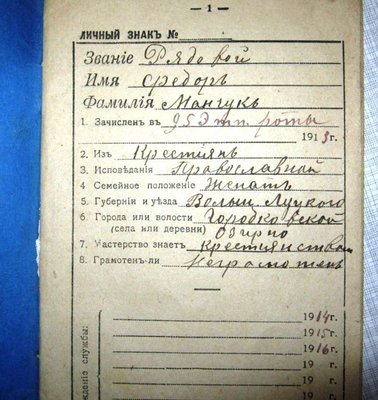 — 1 —
ЛИЧНЫЙ ЗНАКЪ №
Званіе Рядовой
Имя Федоръ
Фамилія Манчукъ
1. Зачисленъ въ 95 Этп. роты
1918г.
2. Изъ Крестиянъ
3. Исповѣданія Православной
4. Семейное положеніе Женатъ
5. Губерніи и уѣзда Волын Луцкого
6. Города или волости Городковской
(села или деревни) Озирно
7. Мастерство знаетъ Крестиянством
8. Грамотенъ-ли Неграмотенъ
1914г.
1915г.
1916г.
19 г.
19 г.
ждение службы: